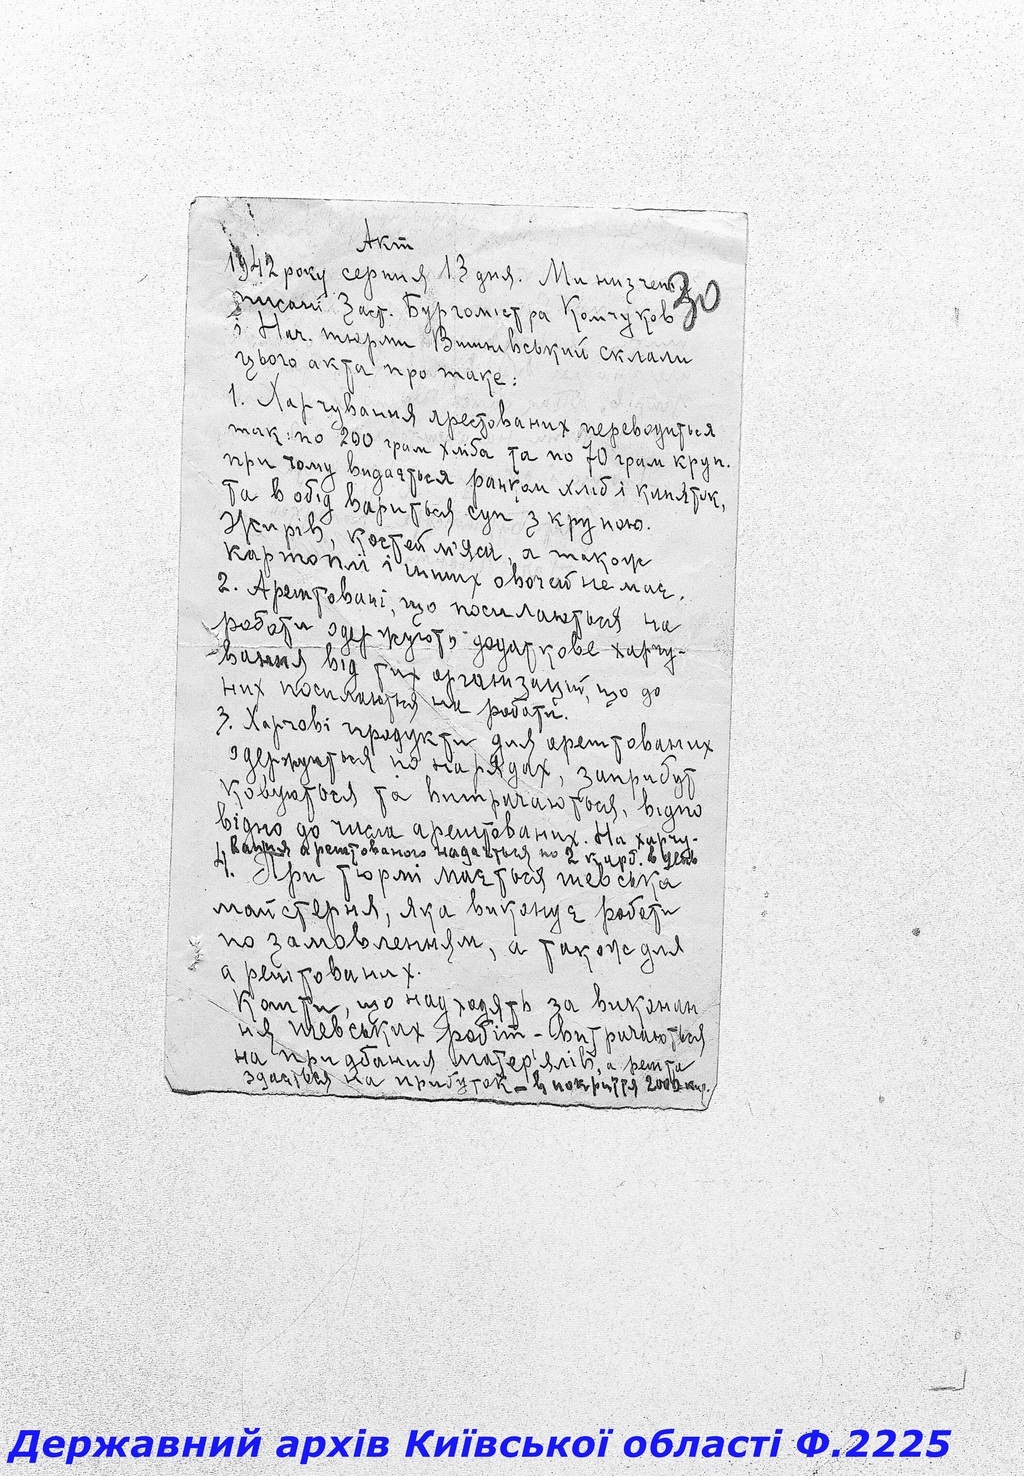 Акт
1942 року серпня 13 дня. Ми низчепід
30
писані Заст. Бургомістра Комчуков
і Нач. тюрми Вишнівський склали
цього акта про таке:
1. Харчування арестованих переводиться
так: по 200 грам хліба та по 70 грам круп.
при чому видається ранком хліб і кипяток,
та в обід вариться суп з крупою.
Жирів, костей м'яса, а також
картоплі і інших овочей немає.
2. Арештовані, що посилаються на
роботи одержують додаткове харчу-
вання від тих організацій, що до
них посилаються на роботи.
3. Харчові продукти для арештованих
одержуються по нарядах, заприбут
ковуються та витрачаються, відпо
відно до числа арештованих. На харчу-
вання арештованого надається по 2 карб. в день
4. При тюрмі мається шевська
майстерня, яка виконує роботи
по замовленням, а також для
арештованих.
Кошти, що надходять за виконан
ня шевських робіт - витрачаються
на придбання матер'ялів, а решта
здається на прибуток - в покриття 2000 кар.
Державний архів Київської області Ф.2225